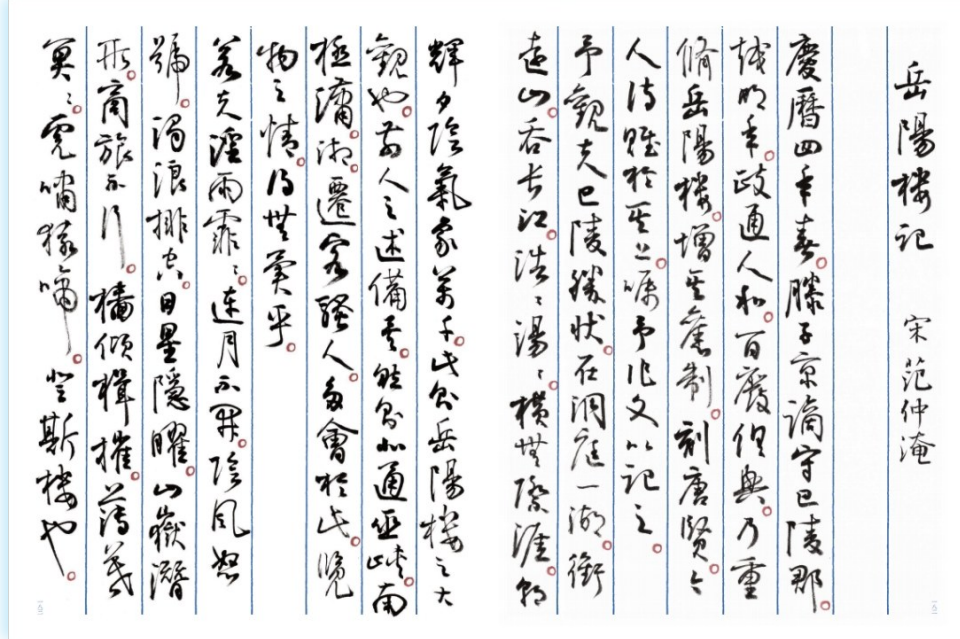 岳陽楼記 宋 范仲淹
慶曆四年春。滕子京謫守巴陵郡。
越明年。政通人和。百廢俱興。乃重
脩岳陽楼。增其舊制。刻唐賢今
人詩賦於其上。囑予作文以記之。
予觀夫巴陵勝狀。在洞庭一湖。銜
遠山。吞長江。浩〻湯〻。橫無際涯。朝
輝夕陰氣象萬千。此則岳陽楼之大
觀也。前人之述備矣。然則北通巫峽。南
極瀟湘。遷客騷人。多會於此。覽
物之情。得無異乎。
若夫淫雨霏〻。連月不開。陰風怒
號。濁浪排空。日星隱曜。山嶽潛
形。商旅不行。檣傾楫摧。薄暮
冥〻。虎嘯猿啼。登斯楼也。